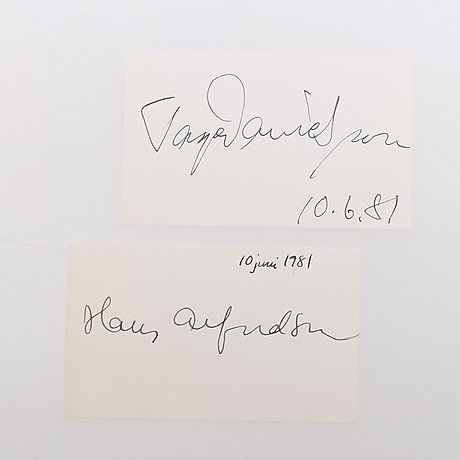 Tage Danielsson
10.6.81
10 juni 1981
Hans Alfredson